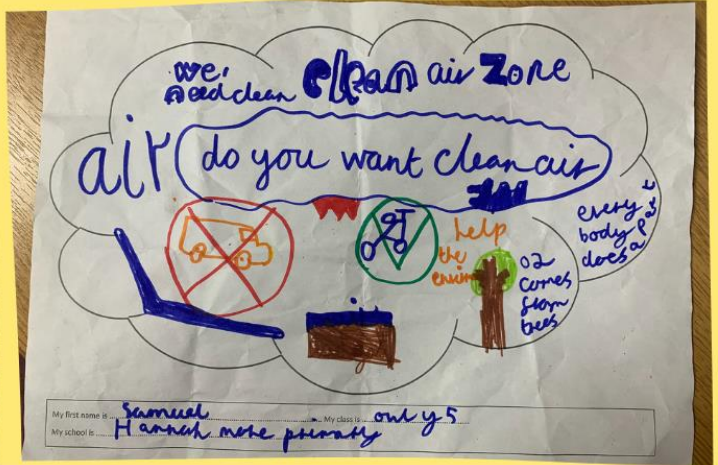 we,
need clean
clean air Zone
air
do you want clean air
help
the
every
body
does a
o2
comes
from
trees
My first name is Samuel My class is owl y5
My school is Hannah more primary